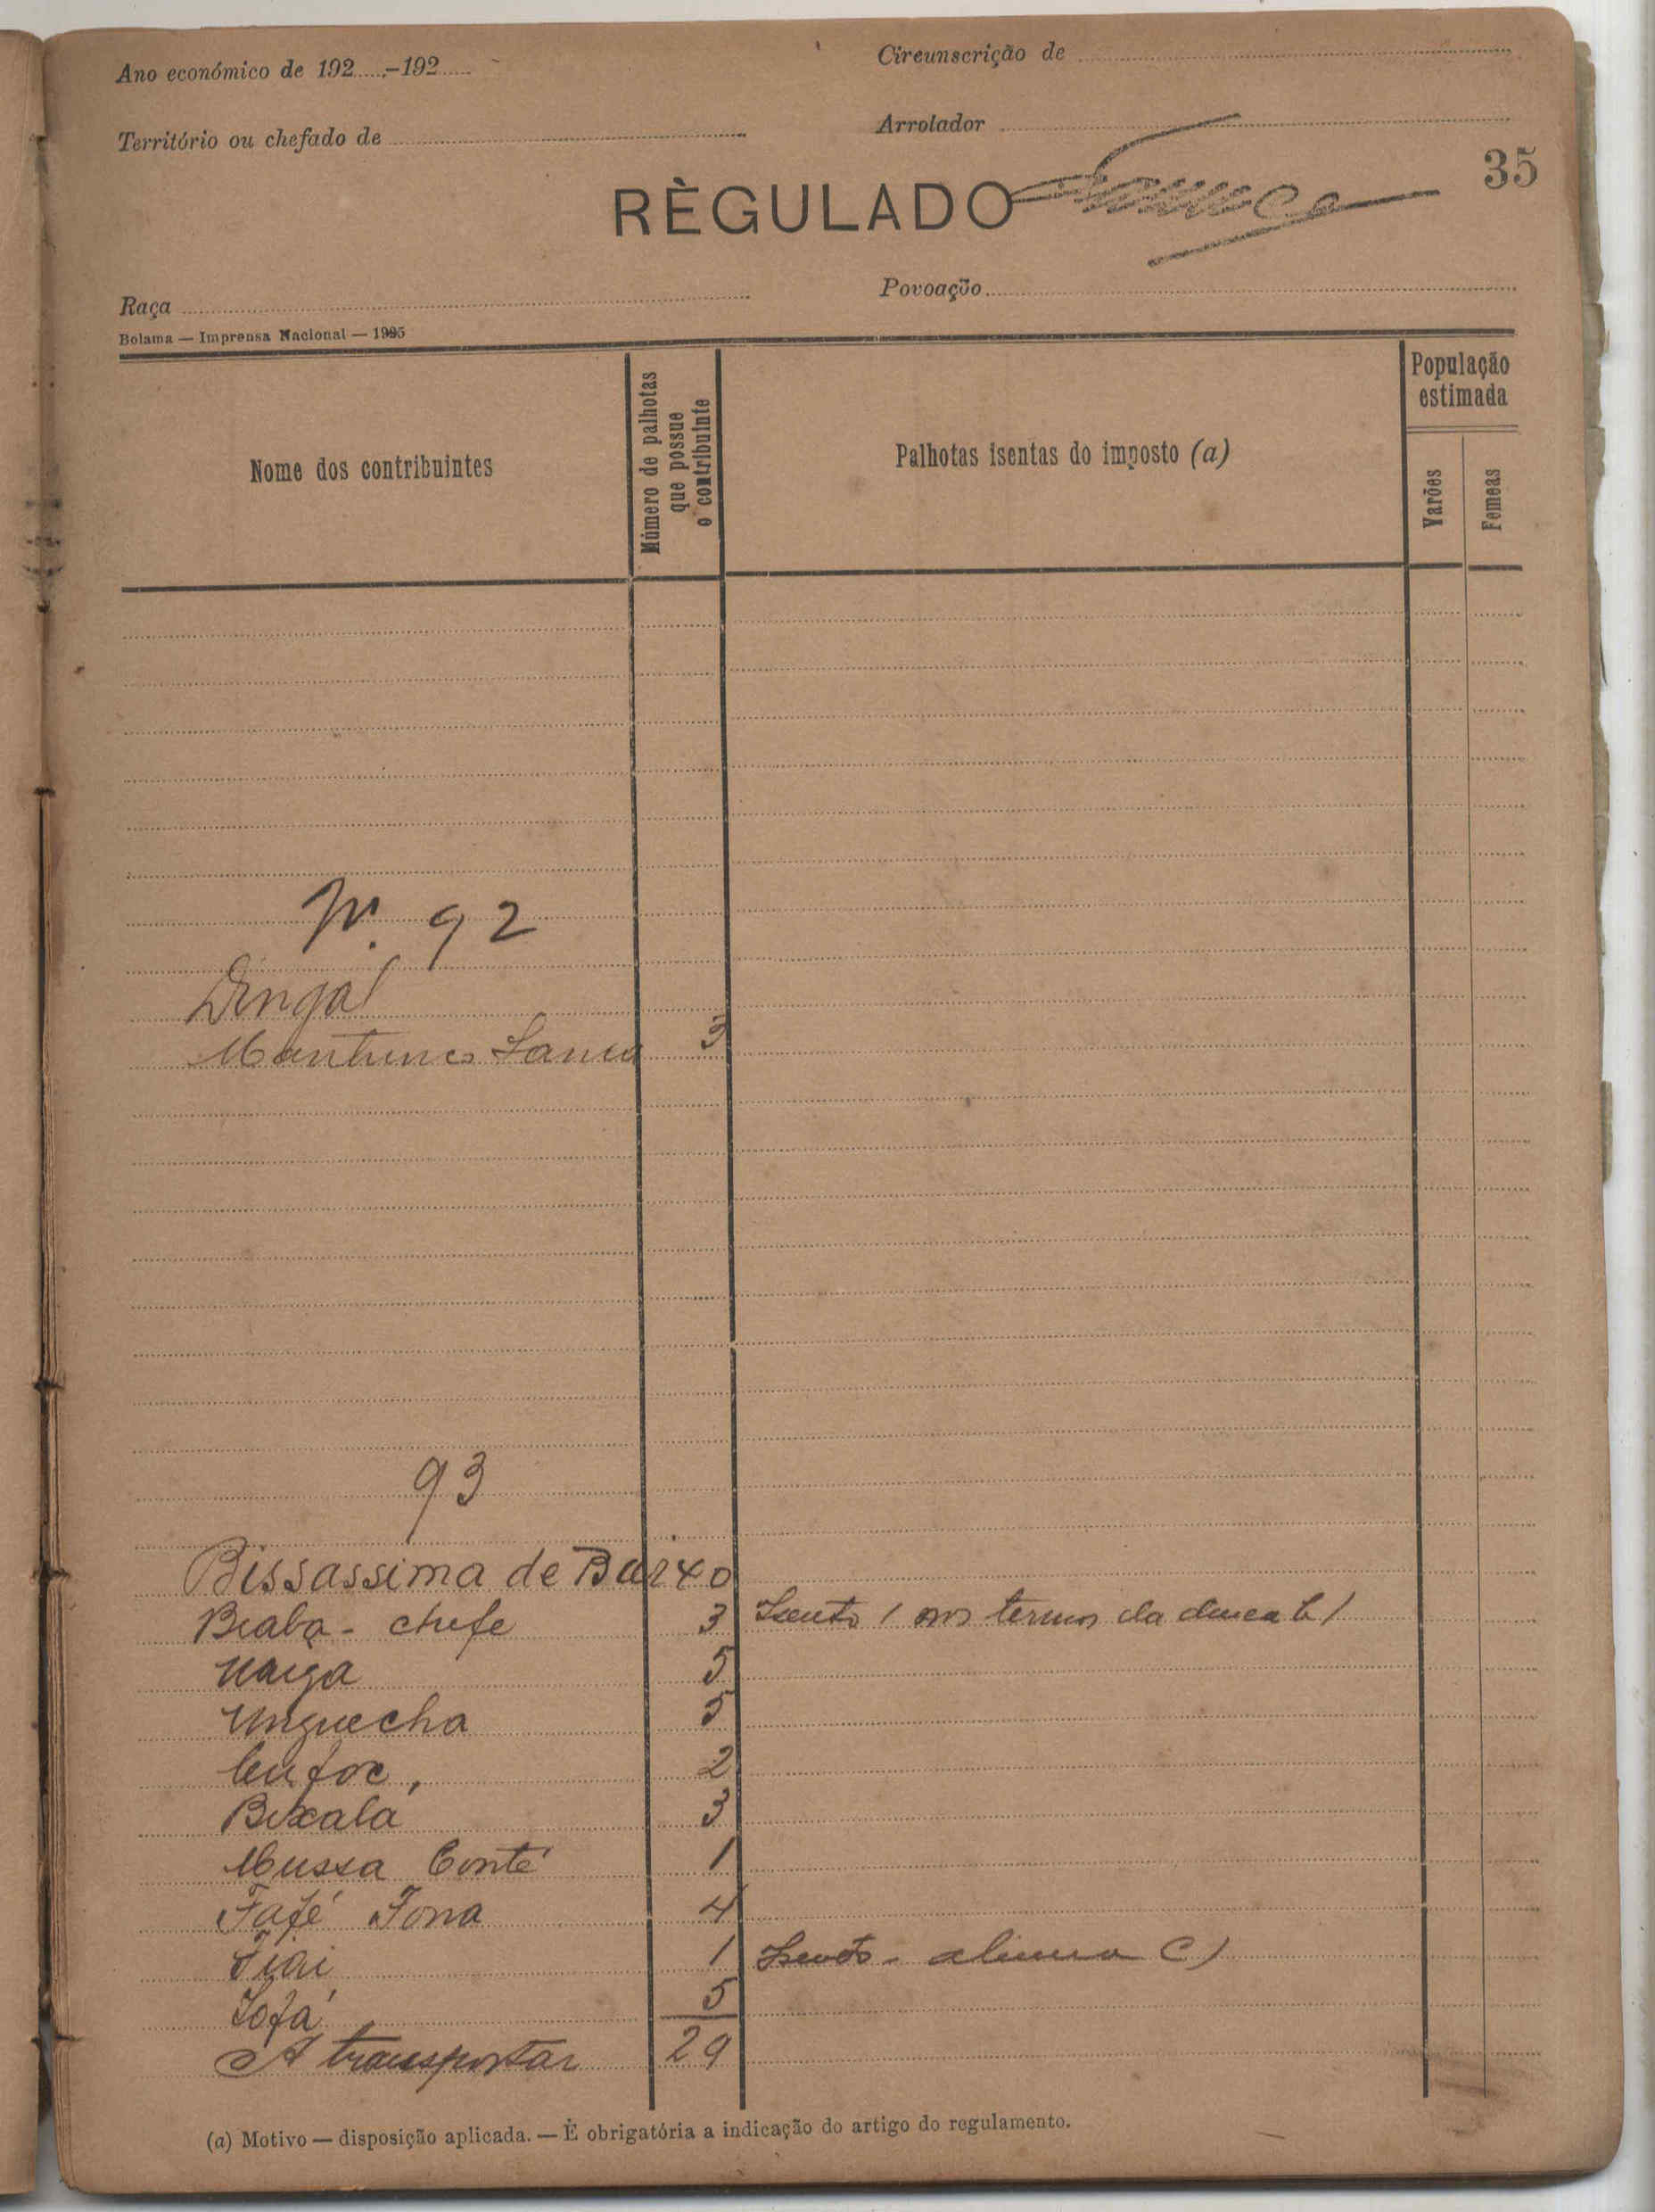 Ano económico de 192......-192......
Circunscrição de
Território ou chefado de
Arrolador
35
RÈGULADO
Raça
Povoação
Bolama — Imprensa Nacional — 1925
Nome dos contribuintes
Número de palhotas que possue o contribuinte
Palhotas isentas do imposto (a)
População estimada
Varões
Femeas
Nº 92
Dingal
3
93
Bissassima de Baixo
Biaba - chefe 3 Isento / nos termos da b /
Naiga 5
Unguecha 5
Cufoc 2
Bixalá 3
Mussa Conté 1
Fafé Fona 4
Fiai 1 Isento - alinea C)
Sofá 5
A transportar 29
(a) Motivo — disposição aplicada. — É obrigatória a indicação do artigo do regulamento.